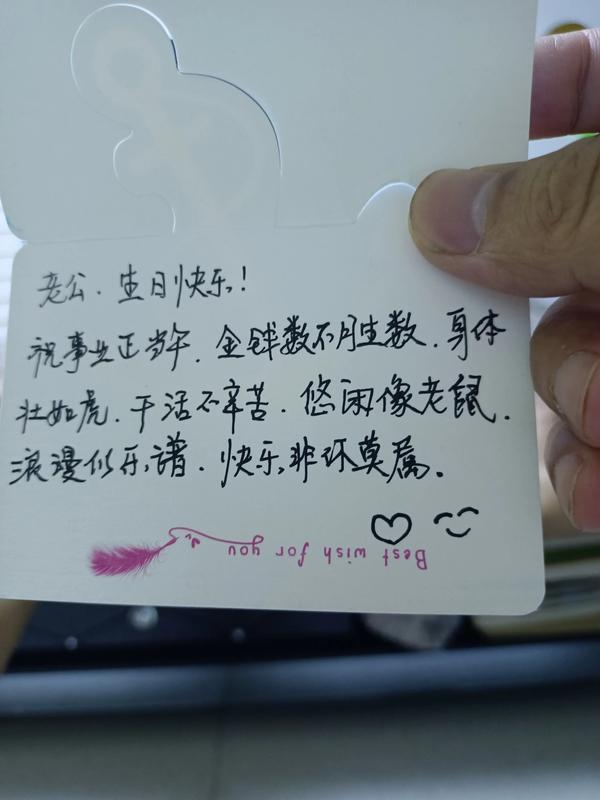 老公.生日快乐!
祝事业正当午.金钱数不胜数.身体
壮如虎.干活不辛苦.悠闲像老鼠.
浪漫似乐谱.快乐非你莫属。
Best wish for you